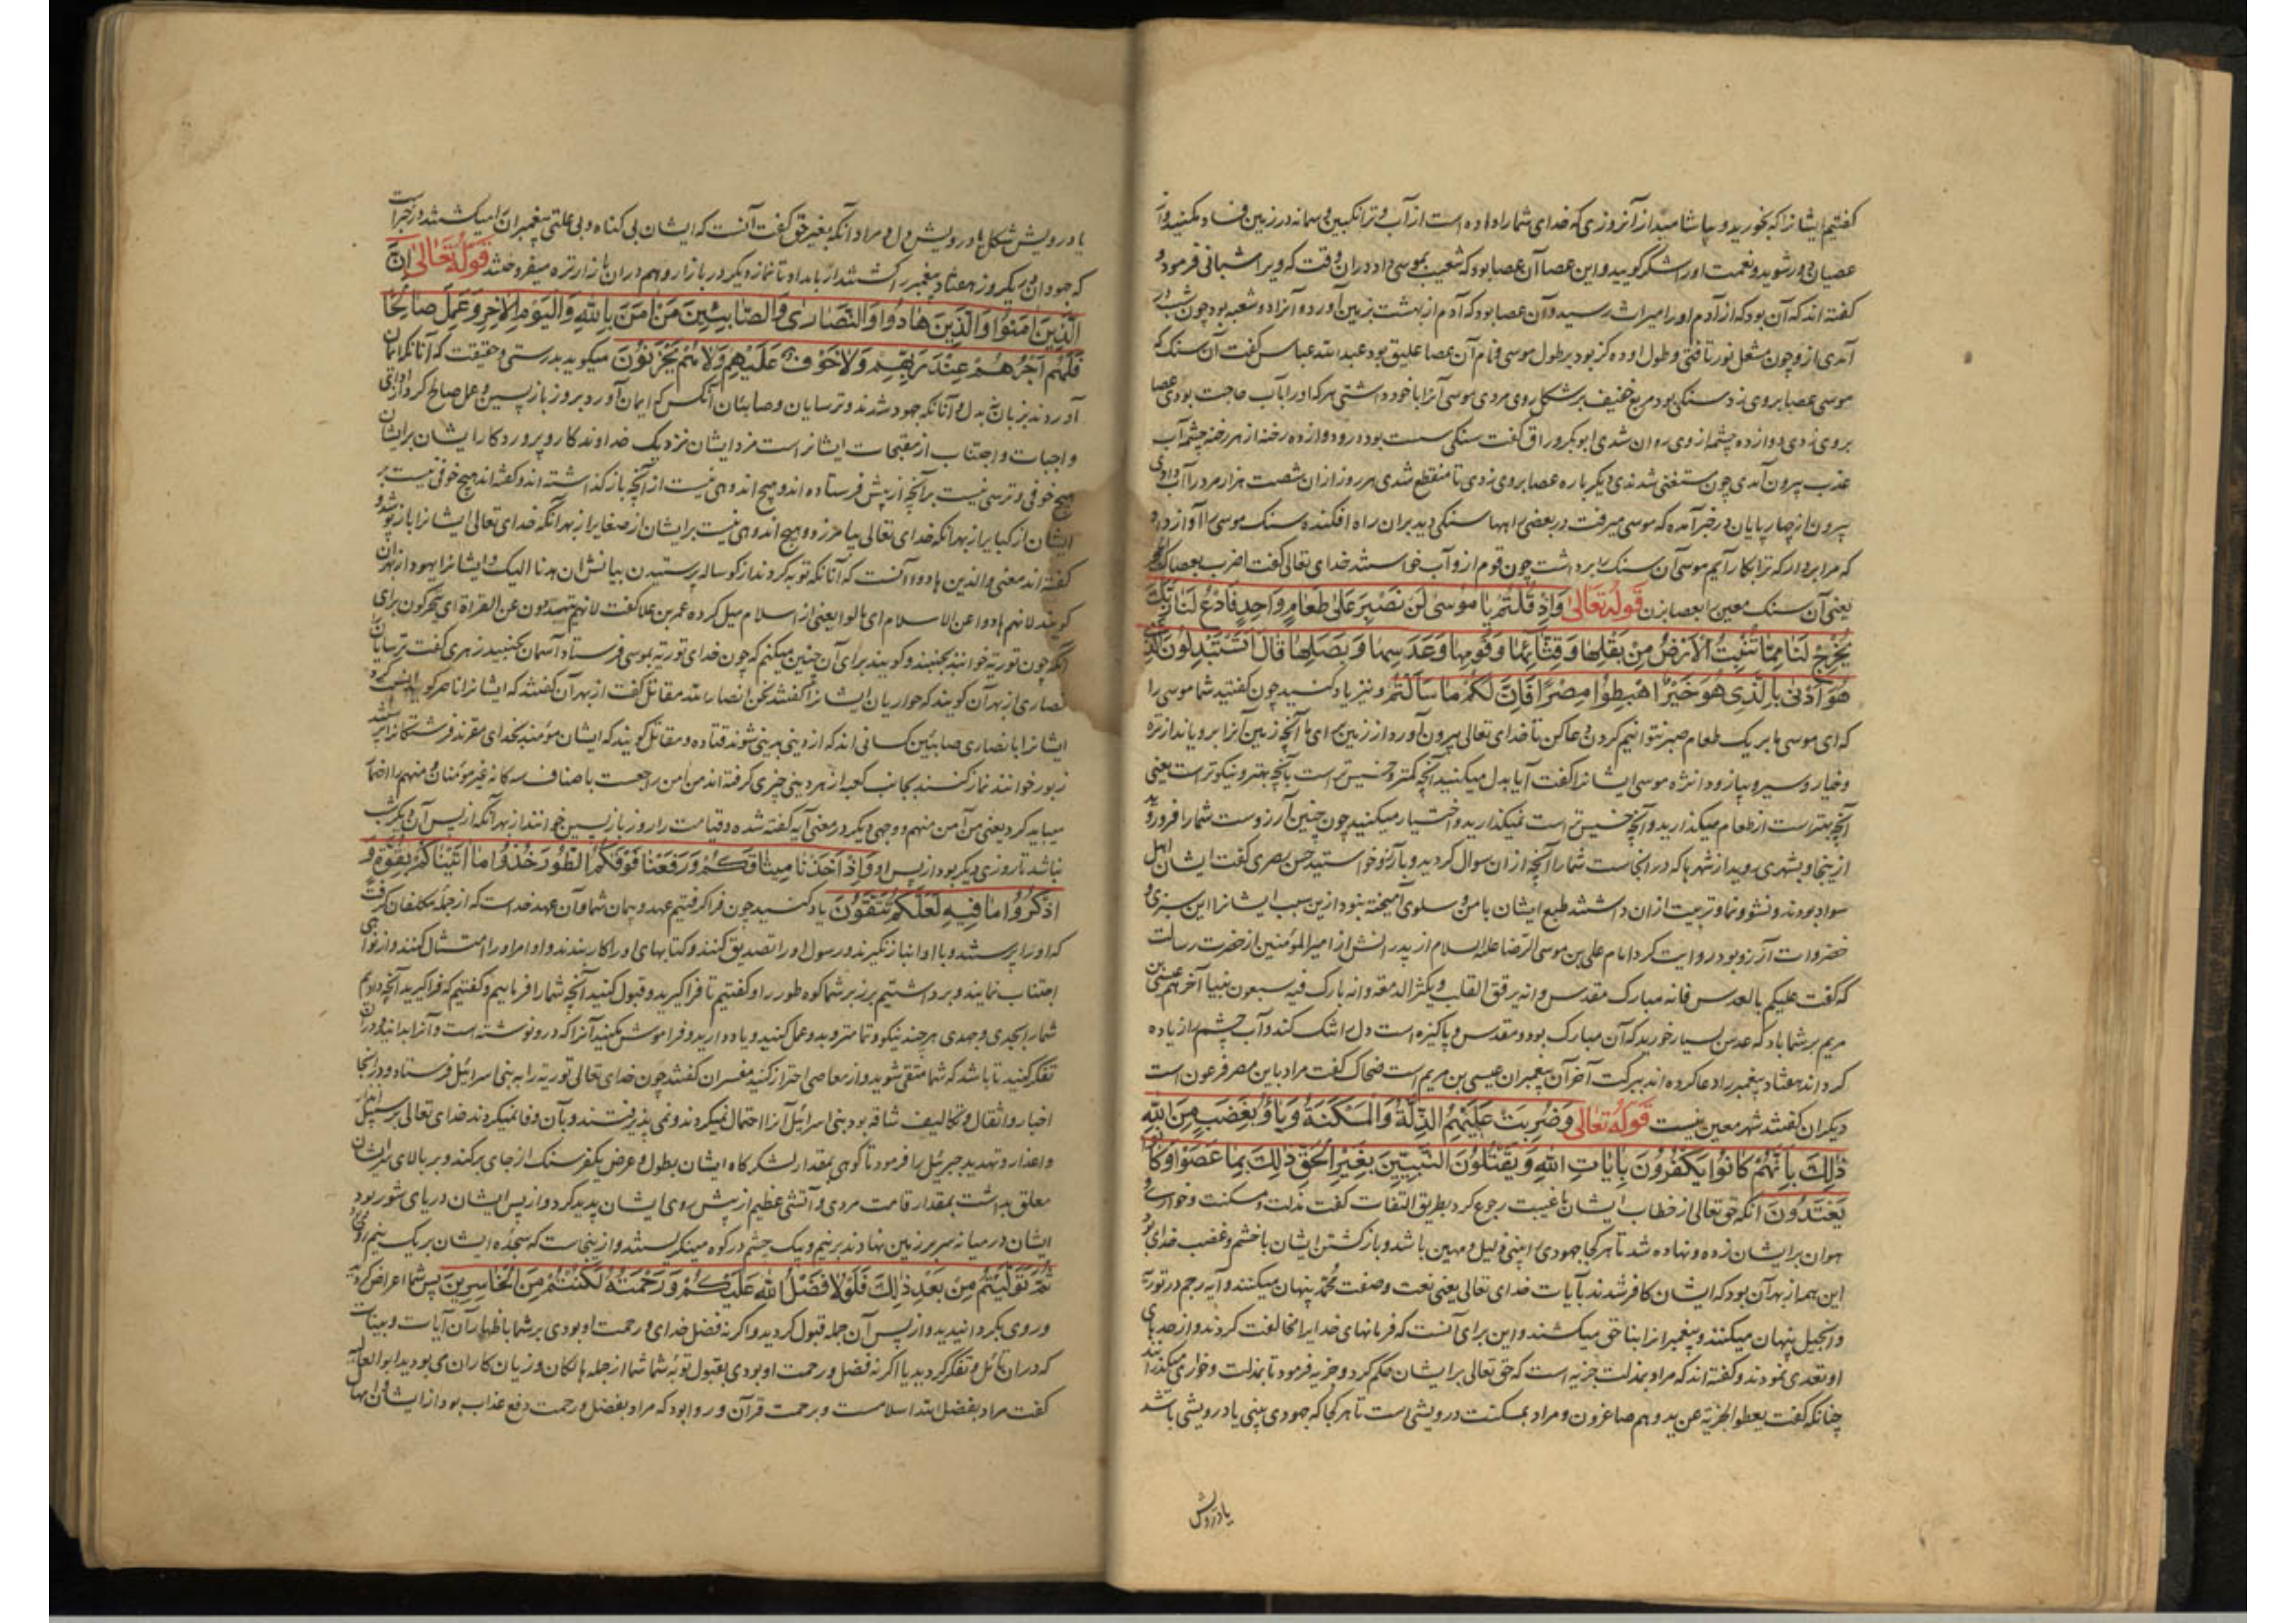 گفتیم ایشانرا که بخورید و بیاشامید از آنروزی که خدای شمارا داده است از آب و ترانگبین و سمانه و در زمین فساد مکنید و از
عصیان دور شوید و نعمت اورا شکر گویید و این عصا آن عصا بود که شعیب بموسی داد در آن وقت که ویرا شبانی فرمود و
گفته اند که آن بود که از آدم اورا میراث رسید و آن عصا بود که آدم از بهشت بزمین آورده و آنرا دو شعبه بود چون شب در
آمدی ازو چون مشعل نور تافتی و طول او ده گز بود بر طول موسی و نام آن عصا علیق بود عبدالله عباس گفت آن سنک که
موسی عصا بر وی زد سنکی بود مربع خفیف بر شکل روی مردی موسی آنرا با خود داشتی هر که اورا بآب حاجت بودی عصا
بروی زدی دوازده چشمه از وی روان شدی ابوبکر وراق گفت سنکی سست بود درو دوازده رخنه از هر رخنه چشمه آب
عذب بیرون آمدی چون مستغنی شدندی دیگر باره عصا بروی زدی تا منقطع شدی هر روز از ان شصت هزار مرد را آب دادی
بیرون از چارپایان در خبر آمده که موسی میرفت در بعضی راهها سنکی دید بر ان راه افکنده سنک موسی را آواز داد
که مرا بردار که ترا بکار آیم موسی آن سنک را برداشت چون قوم ازو آب خواستند خدای تعالی گفت اضرب بعصاک الحجر
یعنی آن سنک معین را بعصا بزن قوله تعالی وَاِذْ قُلْتُمْ يَا مُوسٰى لَنْ نَصْبِرَ عَلٰى طَعَامٍ وَاحِدٍ فَادْعُ لَنَا رَبَّكَ
يُخْرِجْ لَنَا مِمَّا تُنْبِتُ الْاَرْضُ مِنْ بَقْلِهَا وَقِثَّائِهَا وَفُومِهَا وَعَدَسِهَا وَبَصَلِهَا قَالَ اَتَسْتَبْدِلُونَ الَّذِى
هُوَ اَدْنٰى بِالَّذِى هُوَ خَيْرٌ اهْبِطُوا مِصْرًا فَاِنَّ لَكُمْ مَا سَاَلْتُمْ و نیز یاد کنید چون گفتید شما موسی را
که ای موسی ما بر یک طعام صبر نتوانیم کردن دعا کن تا خدای تعالی بیرون آورد از زمین برای ما آنچه زمین آنرا برویاند از تره
و خیار و سیر و پیاز و دانژه موسی ایشانرا گفت آیا بدل میکنید آنچه کمتر و خسیس تر است بآنچه بهتر و نیکوتر است یعنی
آنچه بهتر است از طعام میگذارید و آنچه خسیس تر است نمیگذارید و اختیار میکنید چون چنین آرزوست شمارا فرو روید
از ینجا و بشهری روید از شهرها که در انجاست شمارا آنچه از ان سوال کردید و بآرزو خواستید حسن بصری گفت ایشان اهل
سواد بودند و نشو و نما و تربیت از ان داشتند طبع ایشان با من و سلوی آمیخته نبود از ین سبب ایشانرا این سبزی و
خضروات آرزو بود روایت کرد امام علی بن موسی الرضا علیه السلام از پدرانش از امیر المؤمنین از حضرت رسالت
که گفت علیکم بالعدس فانه مبارک مقدس و انه یرقق القلب و یکثر الدمعه و انه بارک فیه سبعون نبیا آخرهم عیسی بن
مریم بر شما باد که عدس بسیار خورید که آن مبارک بود و مقدس و پاکیزه است دل را تنک کند و آب چشم را زیاده
کرداند هفتاد پیغمبر را دعا کرده اند ببرکت آخر آن پیغمبران عیسی بن مریم است ضحاک گفت مراد باین مصر فرعون است
دیگران گفتند شهر معین نیست قوله تعالی وَضُرِبَتْ عَلَيْهِمُ الذِّلَّةُ وَالْمَسْكَنَةُ وَبَاؤُ بِغَضَبٍ مِنَ اللّٰهِ
ذٰلِكَ بِاَنَّهُمْ كَانُوا يَكْفُرُونَ بِاٰيَاتِ اللّٰهِ وَيَقْتُلُونَ النَّبِيِّينَ بِغَيْرِ الْحَقِّ ذٰلِكَ بِمَا عَصَوْا وَكَانُوا
يَعْتَدُونَ آنکه حق تعالی از خطاب ایشان با غیبت رجوع کرد بطریق التفات گفت مذلت و مسکنت و خواری و
هوان بر ایشان زده و نهاده شد تا هر کجا جهودی را بینی ذلیل و مهین باشد و بازکشتن ایشان با خشم و غضب خدای بود
این همه از بهر آن بود که ایشان کافر شدند بآیات خدای تعالی یعنی نعت و صفت محمد پنهان میکنند و آیه رجم در توریة
و انجیل پنهان میکنند و پیغمبرانرا بناحق میکشند و این برای آنست که فرمانهای خدایرا مخالفت کردند و از حدهای
او تعدی نمودند و گفته اند که مراد بمذلت جزیه است که حق تعالی بر ایشان حکم کرد و جزیه فرمود تا بمذلت و خواری میکذارند
چنانکه گفت یعطوا الجزیة عن ید و هم صاغرون و مراد بمسکنت درویشی است تا هر کجا که جهودی بینی یا درویشی باشد
یا درویش
یا درویش شکل یا درویش دل و مراد آنکه بغیر حق گفت آنست که ایشان بی کناه و بی علتی پیغمبران را میکشتند در خبر است
که جهودان در یکروز هفتاد پیغمبر را کشتند از بامداد تا نماز دیگر در بازار و هم در ان بازار تره میفروختند قوله تعالی اِنَّ
الَّذِينَ اٰمَنُوا وَالَّذِينَ هَادُوا وَالنَّصَارٰى وَالصَّابِئِينَ مَنْ اٰمَنَ بِاللّٰهِ وَالْيَوْمِ الْاٰخِرِ وَعَمِلَ صَالِحًا
فَلَهُمْ اَجْرُهُمْ عِنْدَ رَبِّهِمْ وَلَا خَوْفٌ عَلَيْهِمْ وَلَا هُمْ يَحْزَنُونَ میکوید بدرستی و حقیقت که آنانکه ایمان
آوردند بزبان نه بدل و آنانکه جهود شدند و ترسایان و صابئان آنکس که ایمان آورد بروز بازپسین و عمل صالح کرد از ادای
واجبات و اجتناب از مقبحات ایشانراست مزد ایشان نزدیک خداوندکار و پروردکار ایشان بر ایشان
هیچ خوفی و ترسی نیست بر آنچه از پیش فرستاده اند و هیچ اندوهی نیست از آنچه باز گذاشته اند و گفته اند هیچ خوفی نیست بر
ایشان از کبایر از بهر آنکه خدای تعالی بیامرزد و هیچ اندوهی نیست بر ایشان از صغایر از بهر آنکه خدای تعالی ایشانرا باز پوشد و
گفته اند معنی والذین هادوا آنست که آنانکه توبه کردند از کوساله پرستیدن بیانش انا هدنا الیک و ایشانرا یهود از بهر آن
کویند لانهم هادوا عن الاسلام ای مالوا یعنی از اسلام میل کردند عمر بن علا گفت لانهم یتهودون عن القراة ای یتحرکون برای
آنکه چون توریة خوانند بجنبند و کویند برای آن چنین میکنیم که چون خدای توریة بموسی فرستاد آسمان بجنبید زهری گفت ترسایان
نصاری از بهر آن کویند که حواریان ایشانرا گفتند نحن انصار الله مقاتل گفت از بهر آن گفتند که ایشانرا ناصره کویند
ایشانرا با نصاری صابئین کسانی اند که از دینی بدینی شوند قتاده و مقاتل کویند که ایشان مؤمنند بخدای مقرند فرشتکانرا پرستند
زبور خوانند نماز کنند بجانب کعبه از هر دینی چیزی گرفته اند من آمن راجعست با اصناف سه کانه غیر مؤمنان و منهم را اضمار
میباید کرد یعنی من آمن منهم و وجهی دیگر در معنی آیه گفته شده و قیامت را روز بازپسین خوانند از بهر آنکه از پس آن دیگر شب
نباشد تا روزی دیگر بود از پس او وَاِذْ اَخَذْنَا مِيثَاقَكُمْ وَرَفَعْنَا فَوْقَكُمُ الطُّورَ خُذُوا مَا اٰتَيْنَاكُمْ بِقُوَّةٍ وَ
اذْكُرُوا مَا فِيهِ لَعَلَّكُمْ تَتَّقُونَ یاد کنید چون فرا گرفتیم عهد و پیمان شما و آن عهد خداست که از جمله مکلفان گرفت
که اورا پرستند و با او انباز نگیرند و رسول اورا تصدیق کنند و کتابهای اورا کار بندند و اوامر اورا امتثال کنند و از نواهی
اجتناب نمایند و برداشتیم بر زبر شما کوه طور را و گفتیم تا فرا گیرید و قبول کنید آنچه شمارا فرماییم و گفتیم که فرا گیرید آنچه دادیم
شمارا بجدی و جهدی هر چند نیکوتر و تمامتر و بدو عمل کنید و یاد دارید و فراموش مکنید آنرا که درو نوشته است و آنرا بدانید و در ان
تفکر کنید تا باشد که شما متقی شوید و از معاصی احتراز کنید مفسران گفتند چون خدای تعالی توریة را به بنی اسرائیل فرستاد و در انجا
اخبار و اثقال و تکالیف شاقه بود بنی اسرائیل آنرا احتمال نمیکردند و نمی پذیرفتند و بآن وفا نمیکردند خدای تعالی بر سبیل انذار
و اعذار و تهدید جبرئیل را فرمود تا کوهی بمقدار لشکرکاه ایشان بطول و عرض یکفرسنک از جای برکند و بر بالای سر ایشان
معلق بداشت بمقدار قامت مردی و آتشی عظیم از پیش روی ایشان پدید کرد و از پس ایشان دریای شور بود
ایشان در میانه سر بر زمین نهادند بر نیم و بیک چشم در کوه مینگریستند و از ینجاست که سجده ایشان بر یک نیم روی بود
ثُمَّ تَوَلَّيْتُمْ مِنْ بَعْدِ ذٰلِكَ فَلَوْلَا فَضْلُ اللّٰهِ عَلَيْكُمْ وَرَحْمَتُهُ لَكُنْتُمْ مِنَ الْخَاسِرِينَ پس شما اعراض کردید
و روی بگردانیدید و از پس آن جمله قبول کردید و اگر نه فضل خدای و رحمت او بودی بر شما باظهار آن آیات و بینات
که در ان تأمل و تفکر کردید یا اگر نه فضل و رحمت او بودی بقبول توبه شما شما از جمله هالکان و زیان کاران می بودید ابو العالیه
گفت مراد بفضل ابتدا اسلامست و برحمت قرآن و روا بود که مراد بفضل و رحمت دفع عذاب بود از ایشان